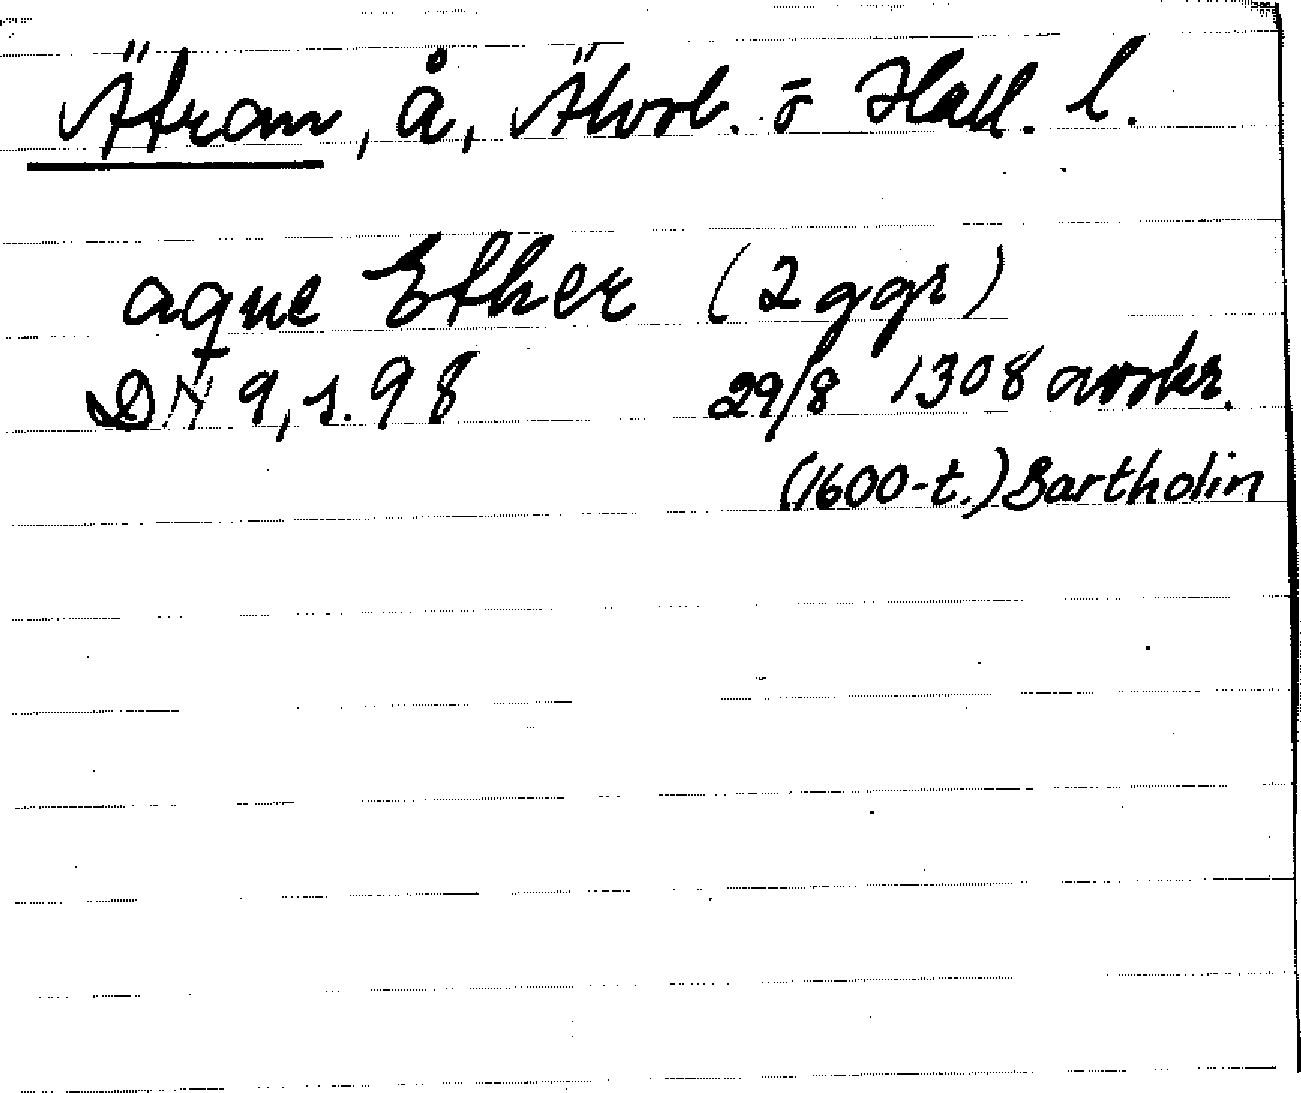 Ätran, å, Älvsb. o Hall. l.
aque Ether (2 ggr)
DN 9, s. 98 29/8 1308 avskr.
(1600-t.) Bartholin